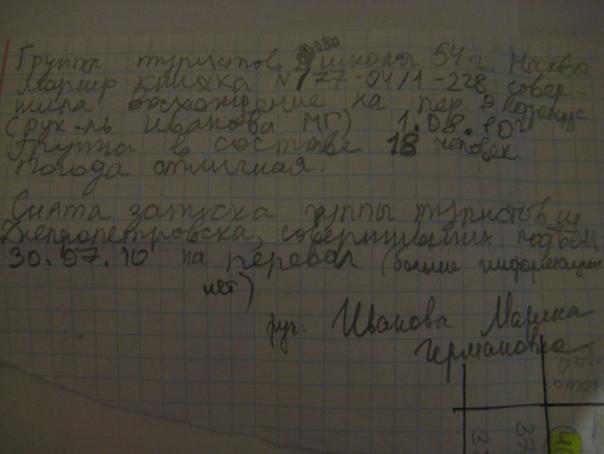 Группа туристов школы 54 г. Москва
Маршр книжка N 177-04/1-228 совер-
шила восхождение на пер. В.
(рук-ль Иванова МГ) 1.08.10г
Группа в составе 18 человек
Погода отличная.
Снята записка группы туристов из
Днепропетровска, совершивших подъём
30.07.10 на перевал (больше информации
нет)
рук. Иванова Марина
Германовна
37